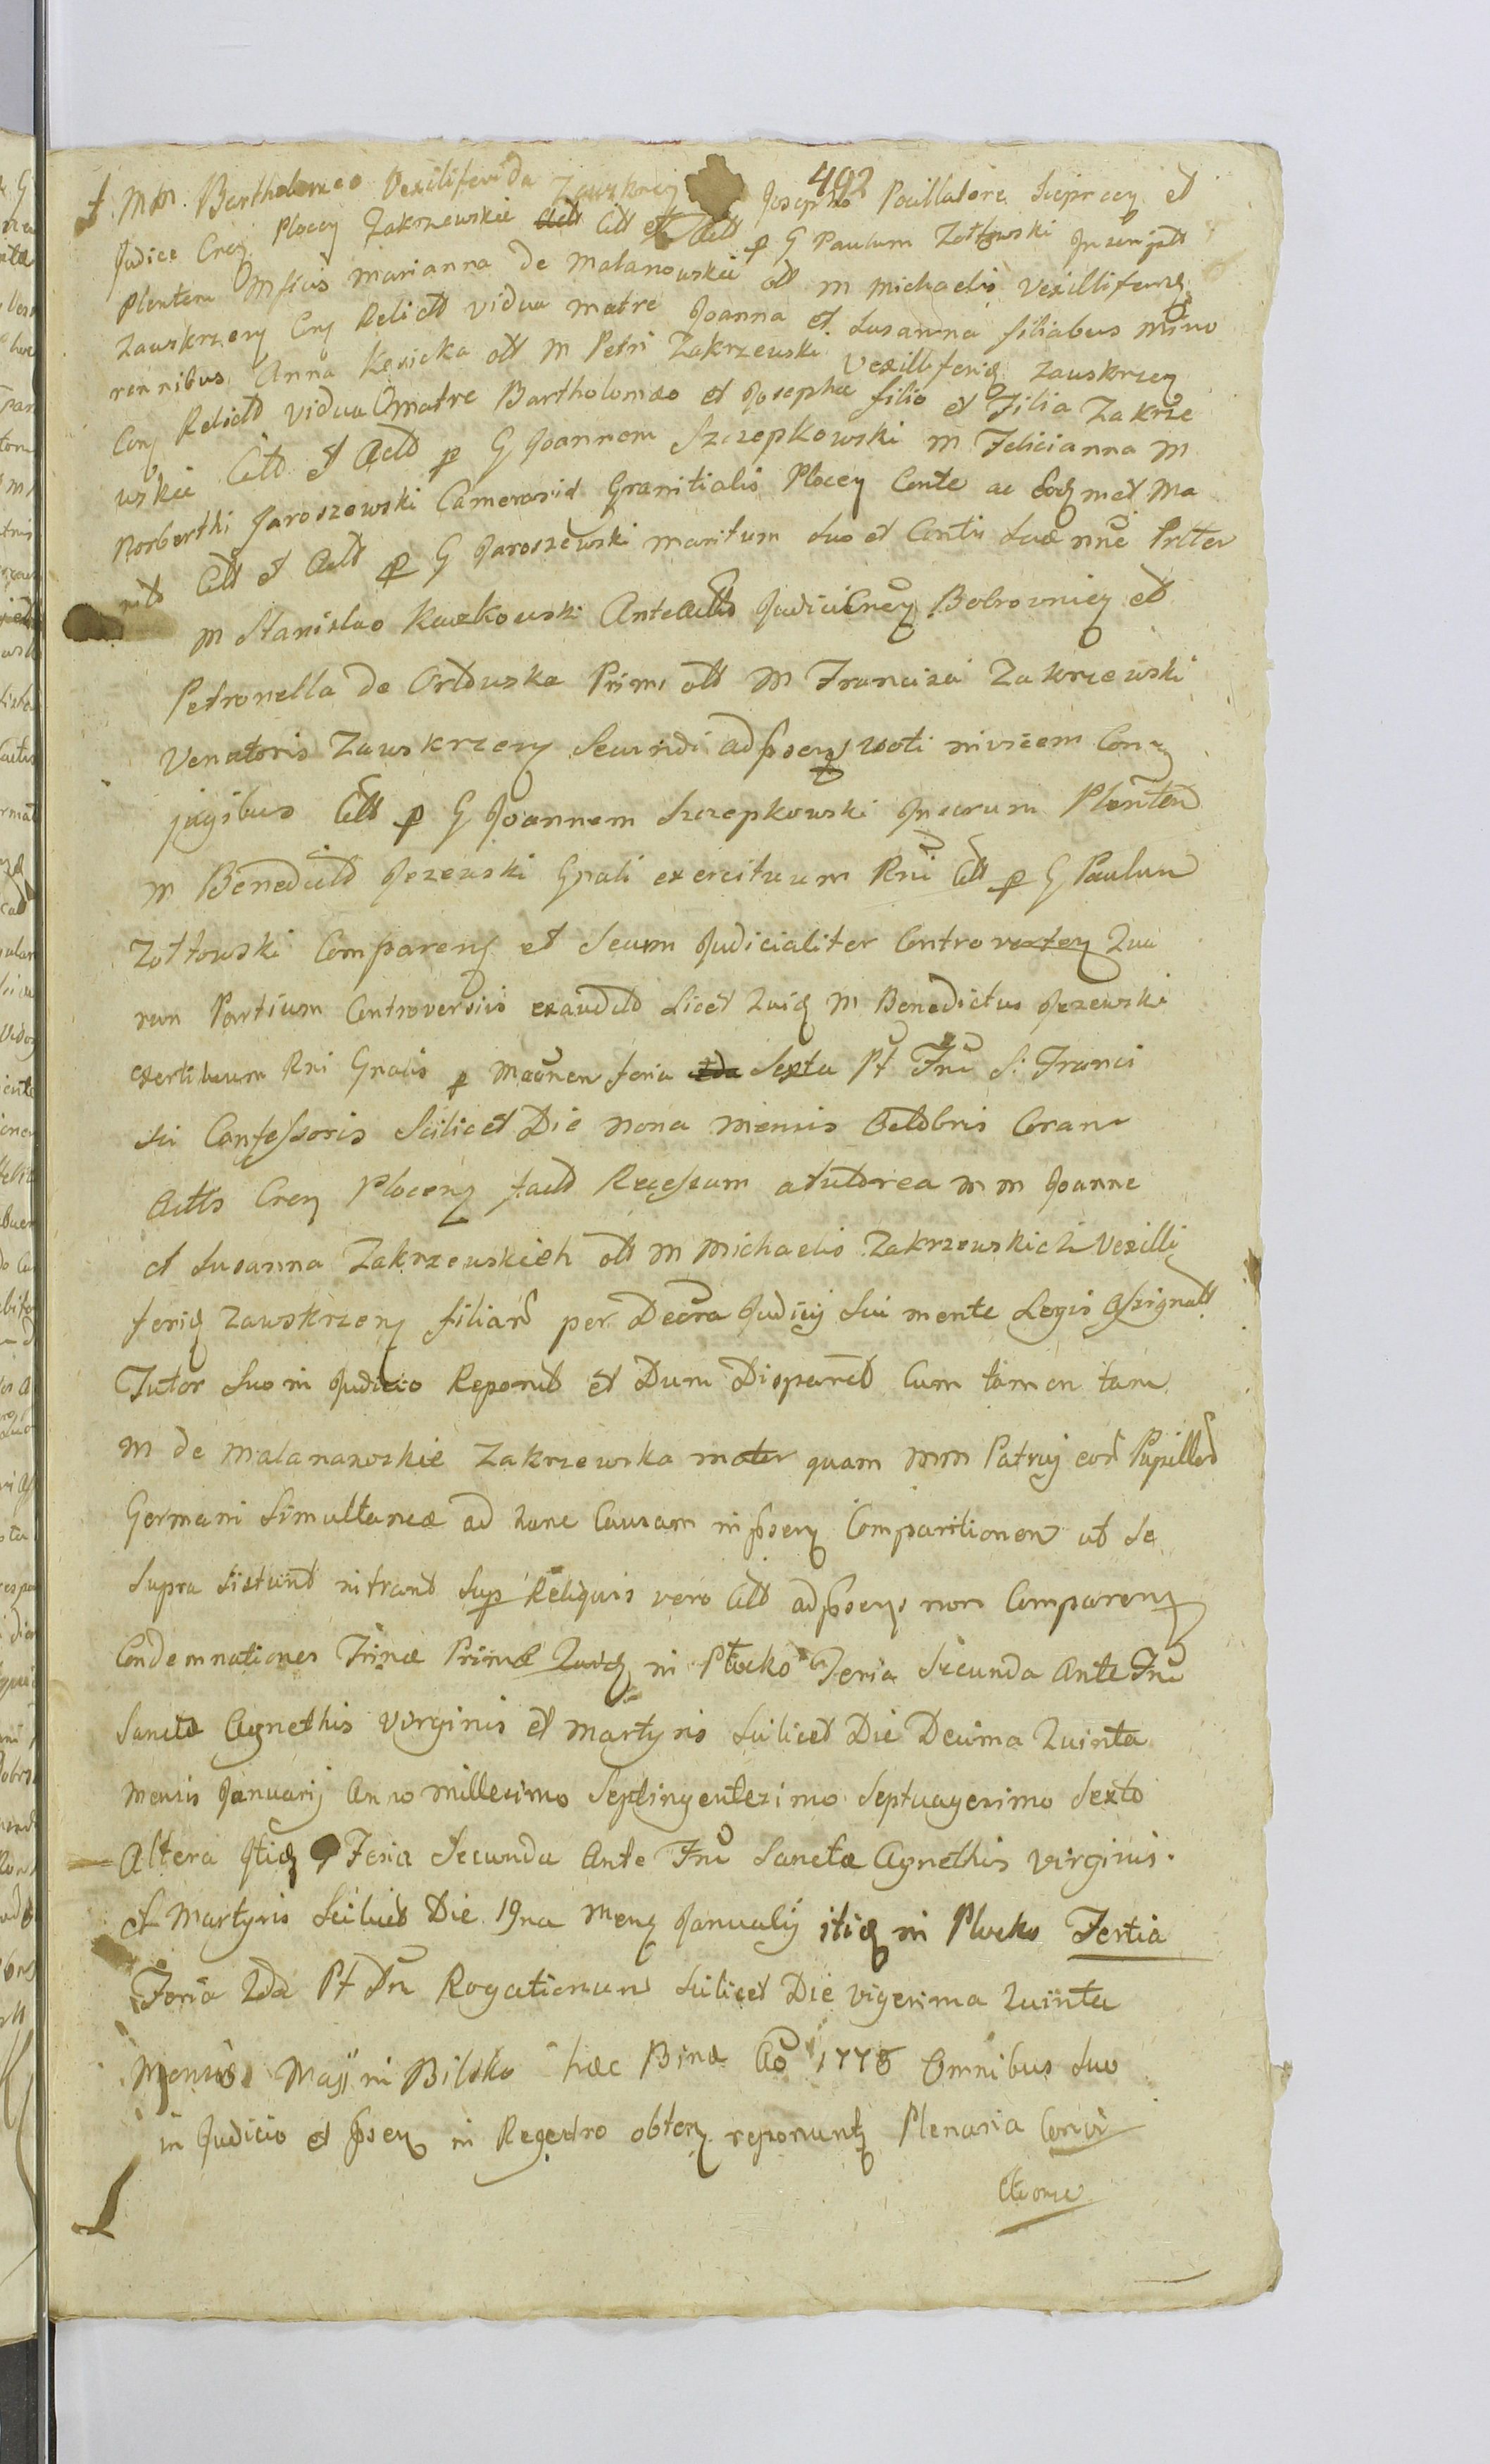 492
MM Bartholomeo Vexilliferida Zawskrzey Josepho Pocillatore Sierpcey et
Judice Crey Plocey Zakrzewskie Citt et Actt p G Paulum Zołtowski Jun
Plenten Mficis Marianna de Malanowskie olt M Michaelis Vexilliferiq
Zawskrzeny Conj Relictt vidua matre Joanna et Susanna filiabus mino
rennibus Anna Kesicka olt M Petri Zakrzewski Vexilliferiq Zawskrzey
Conj Relictt vidua matre Bartholomæo et Josepha filio et Filia Zakrze
wskie Citt et Actt p G Joannem Szczepkowski M Felicianna M
Norberthi Jaroszewski Camerarid Granitialis Plocey Conte ac Eodmet Ma
ritt Citt et Actt p G Jaroszewski maritum suo et Contis suæ nne Prtter
M Stanislao Kuczkowski Anteactto Judici Crey Bobrovniey et
Petronella de Ordtuska Primi olt M Francisci Zakrzewski
Venatoris Zawskrzeny Secundi adpseng voti invicem Con
jugibus Citt p G Joannem Szczepkowski Quorum Plenten
M Benedictt Jezewski Gnali exercituum Rni Citt p G Paulum
Zołtowski Compareng et Secum Judicialiter Controverteng Qua
rum Partium Controversiis exauditt Licet Quidq M Benedictus Jezewski
exertituum Rni Gnalis p Maönen feria Sexta Pt Fnu S: Franci
sci Confessoris Scilicet Die nona mensis Octobris Coram
Actts Crey Ploceng factt Recessum a tutorea M M Joanne
et Susanna Zakrzewskich olt M Michaelis Zakrzewskich Vexilli
feriq Zawskrzeng filiarr per Decra Judicij Sui mente Legis Assignatt
Tutor Suo in Judicio Reponit et Dum Disparet Cum tamen tam
M de Malanowskie Zakrzewska mater quam MM Patruj eorr Pupillorr
Germani Simultaneæ ad hanc Causam in pseng Comparitionen ut Se
Supra Sistunt intrant Sup Reliquis vero Citt adpseng non Compareng
Condemnationes Trinæ Primæ Quidq in Płocko Feria Secunda Ante Fnu
Sanctæ Agnethis Virginis et Martyris Scilicet Die Decima Quinta
Mensis Januarij Anno millesimo Septingentesimo Septuagesimo Sexto
Altera Itiq Feria Secunda Ante Fnu Sanctæ Agnethis Virginis.
et Martyris Scilicet Die 19na Meng Januarij itiq in Plocko Tertia
Feria 2da Pt Fnu Rogationum Scilicet Die vigesima Quinta
Mensis Maji in Bilsko hæc Binæ Ao 1778 Omnibus Suo
in Judicio et pseng in Regestro obteng reponuntg Plenaria Convi
ctione